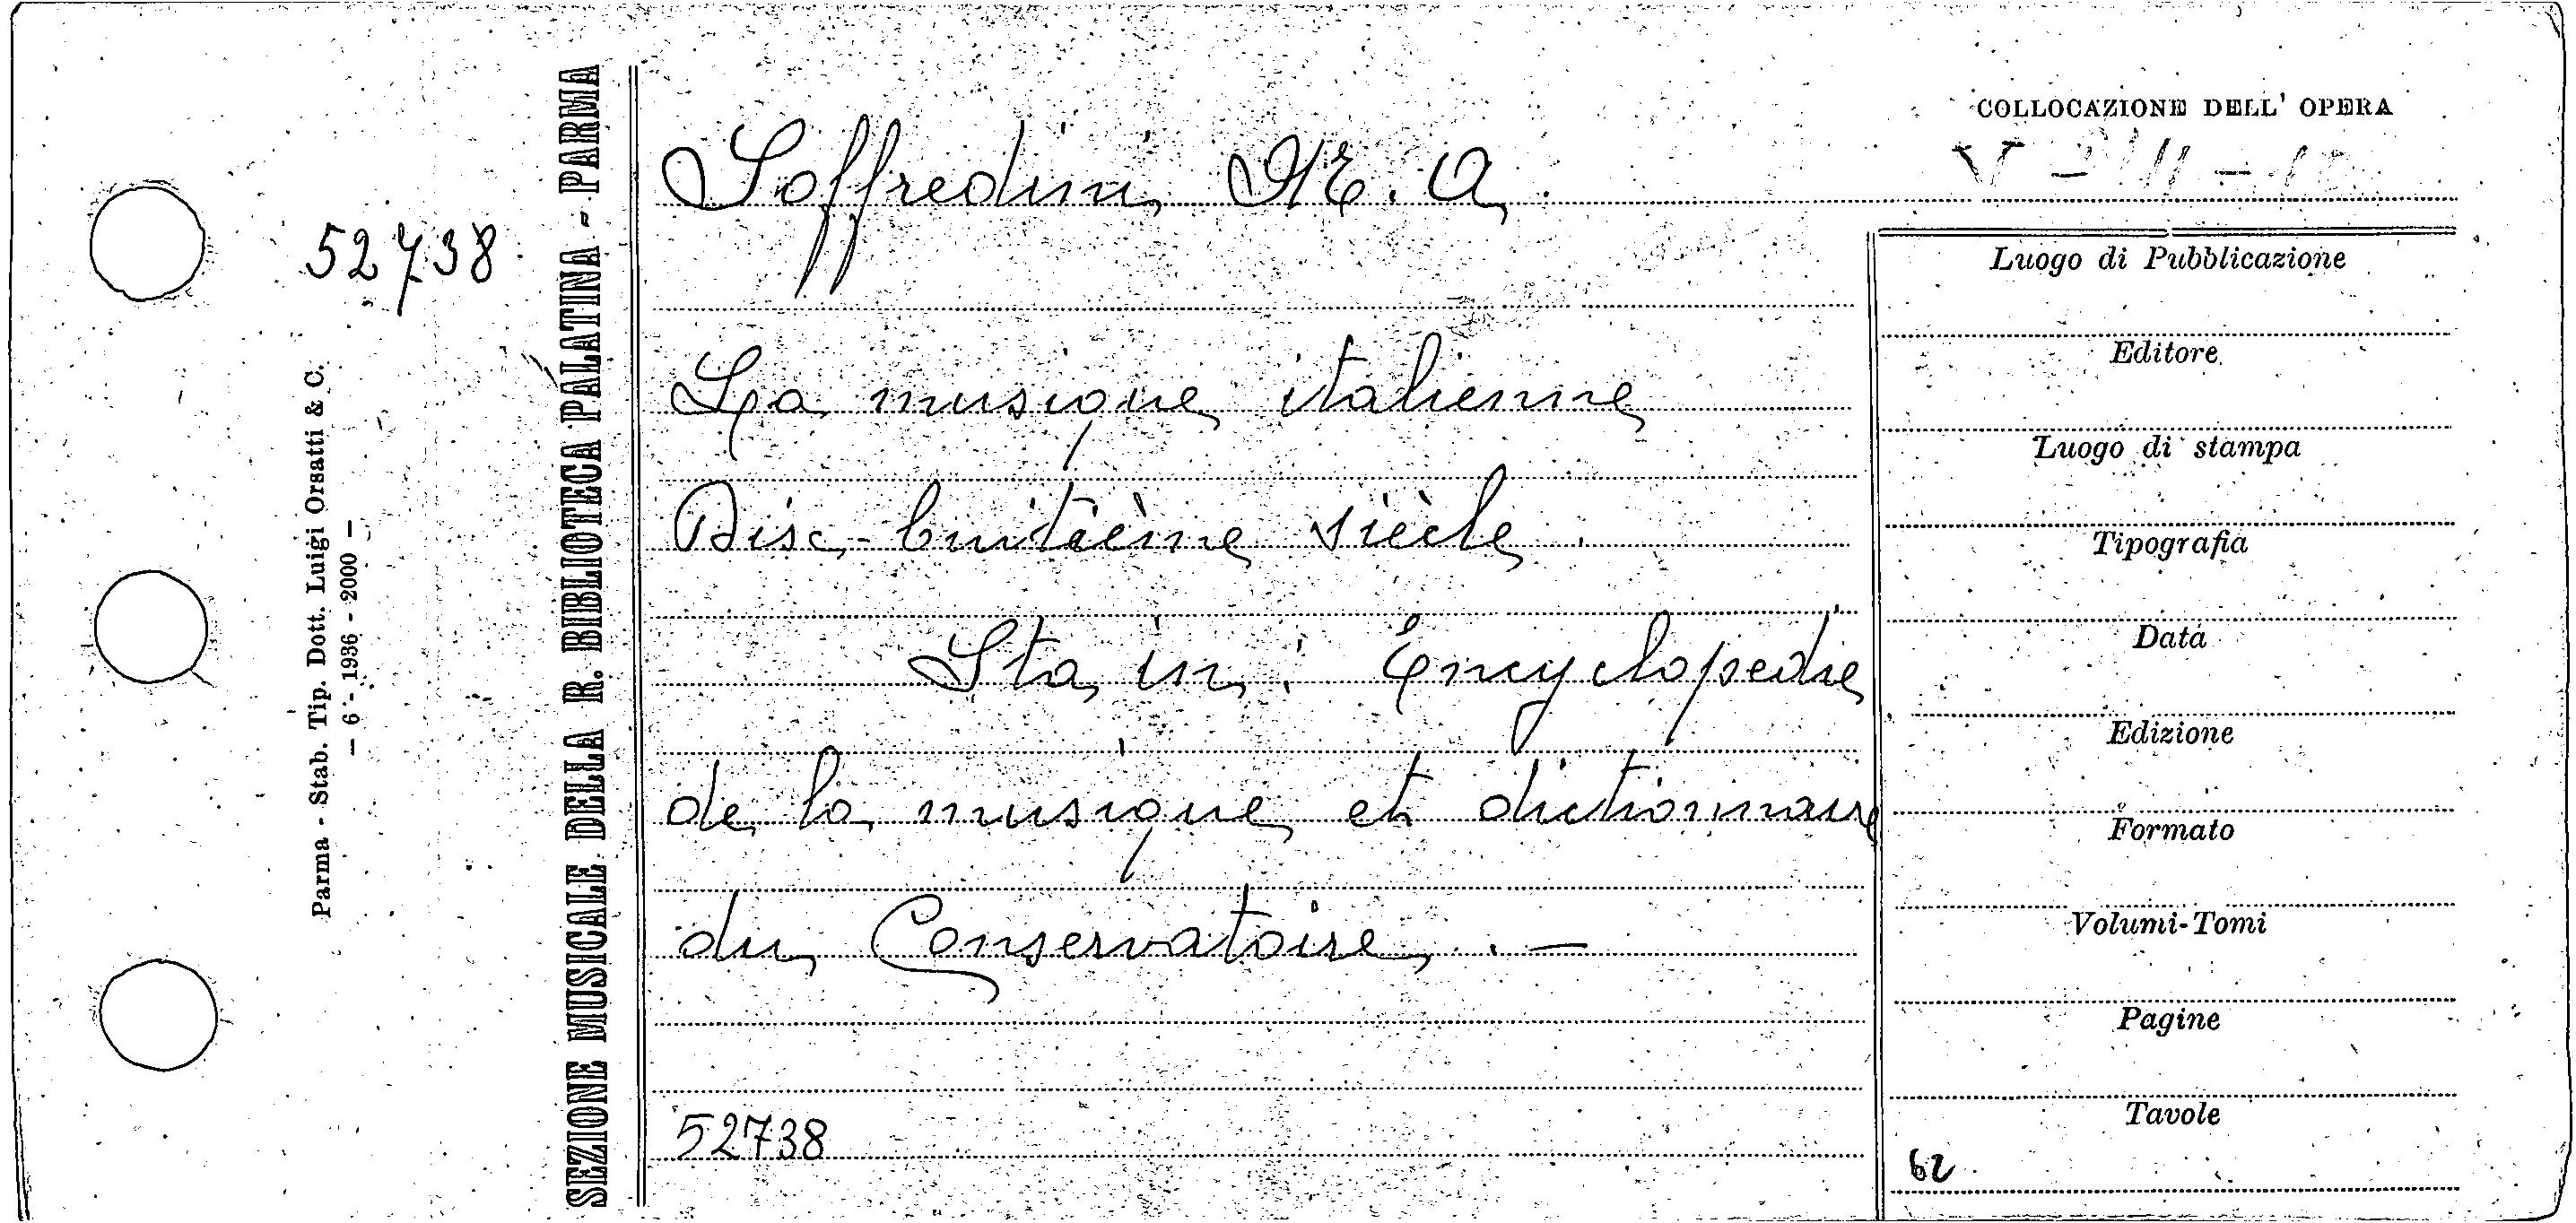 52738
Parma - Stab. Tip. Dott. Luigi Orsatti & C.
— 6 - 1936 - 2000 —
SEZIONE MUSICALE DELLA R. BIBLIOTECA PALATINA - PARMA
Soffredini, M. A.
La musique italienne
Disc-huitième siècle.
Sta in: Encyclopedie
de la musique et dictionnaire
du Conservatoire. —
52738
COLLOCAZIONE DELL' OPERA
Luogo di Pubblicazione
Editore
Luogo di stampa
Tipografia
Data
Edizione
Formato
Volumi-Tomi
Pagine
Tavole
62